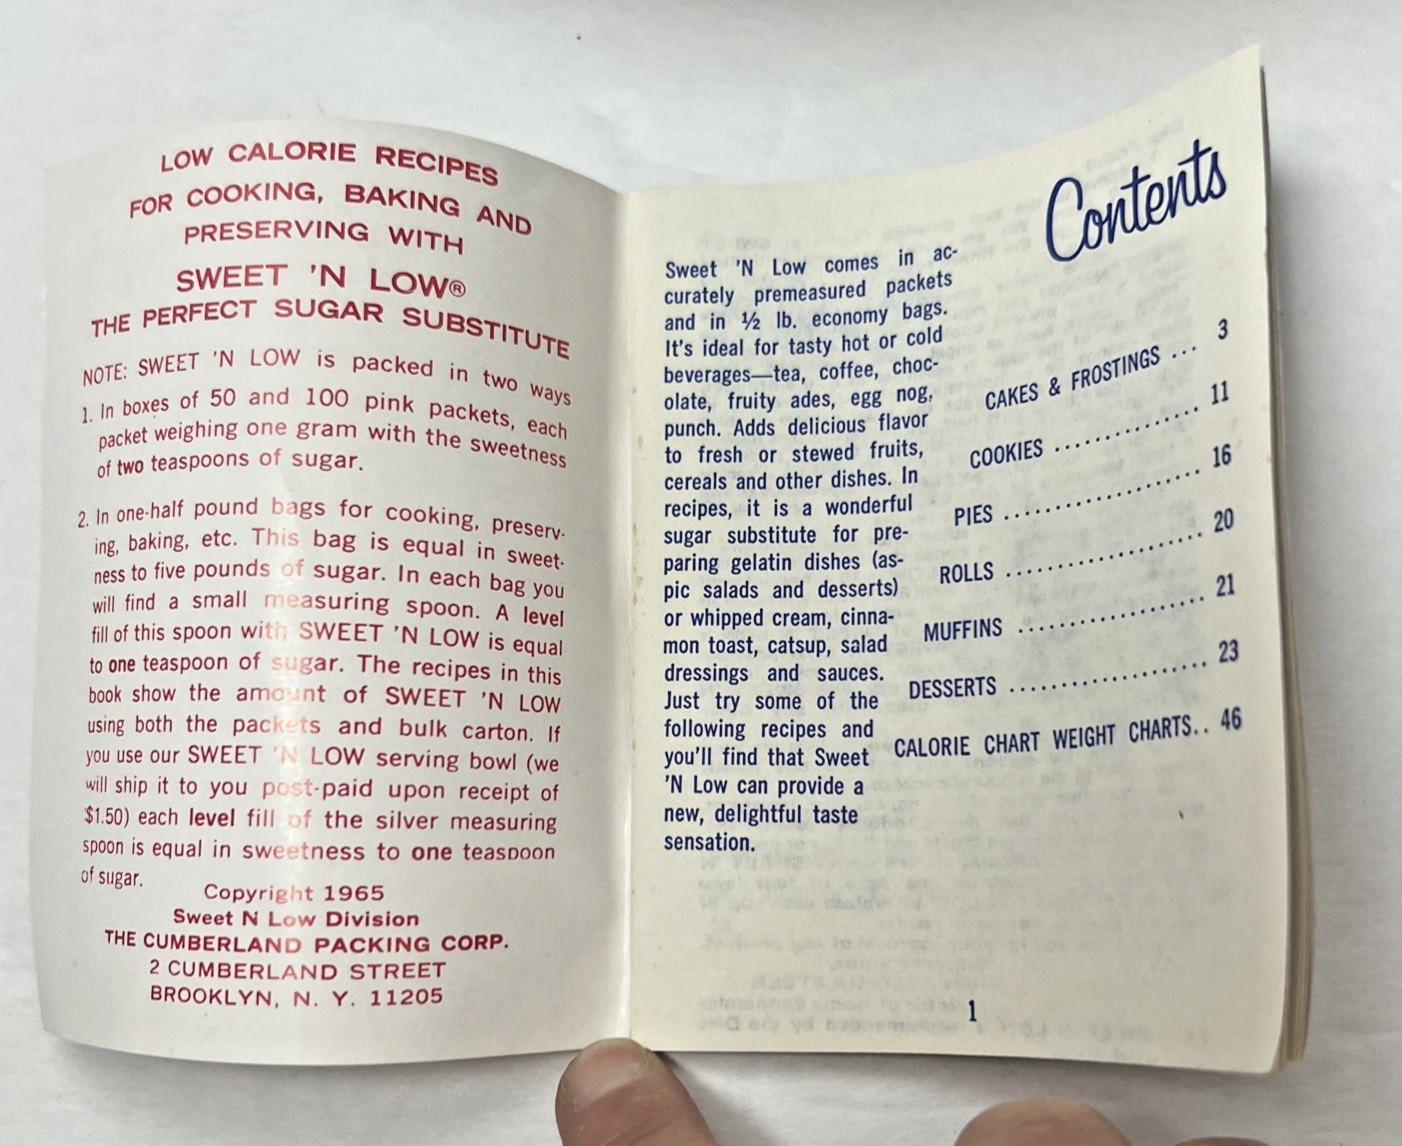 LOW CALORIE RECIPES
FOR COOKING, BAKING AND
PRESERVING WITH
SWEET 'N LOW®
THE PERFECT SUGAR SUBSTITUTE
NOTE: SWEET 'N LOW is packed in two ways
1. In boxes of 50 and 100 pink packets, each
packet weighing one gram with the sweetness
of two teaspoons of sugar.
2. In one-half pound bags for cooking, preserv-
ing, baking, etc. This bag is equal in sweet-
ness to five pounds of sugar. In each bag you
will find a small measuring spoon. A level
fill of this spoon with SWEET 'N LOW is equal
to one teaspoon of sugar. The recipes in this
book show the amount of SWEET 'N LOW
using both the packets and bulk carton. If
you use our SWEET 'N LOW serving bowl (we
will ship it to you post-paid upon receipt of
$1.50) each level fill of the silver measuring
spoon is equal in sweetness to one teaspoon
of sugar.
Copyright 1965
Sweet N Low Division
THE CUMBERLAND PACKING CORP.
2 CUMBERLAND STREET
BROOKLYN, N. Y. 11205
Contents
Sweet 'N Low comes in ac-
curately premeasured packets
and in ½ lb. economy bags.
It's ideal for tasty hot or cold
beverages—tea, coffee, choc-
olate, fruity ades, egg nog,
punch. Adds delicious flavor
to fresh or stewed fruits,
cereals and other dishes. In
recipes, it is a wonderful
sugar substitute for pre-
paring gelatin dishes (as-
pic salads and desserts)
or whipped cream, cinna-
mon toast, catsup, salad
dressings and sauces.
Just try some of the
following recipes and
you'll find that Sweet
'N Low can provide a
new, delightful taste
sensation.
CAKES & FROSTINGS ... 3
COOKIES .............. 11
PIES .................... 16
ROLLS .................... 20
MUFFINS .................... 21
DESSERTS .................... 23
CALORIE CHART WEIGHT CHARTS.. 46
1